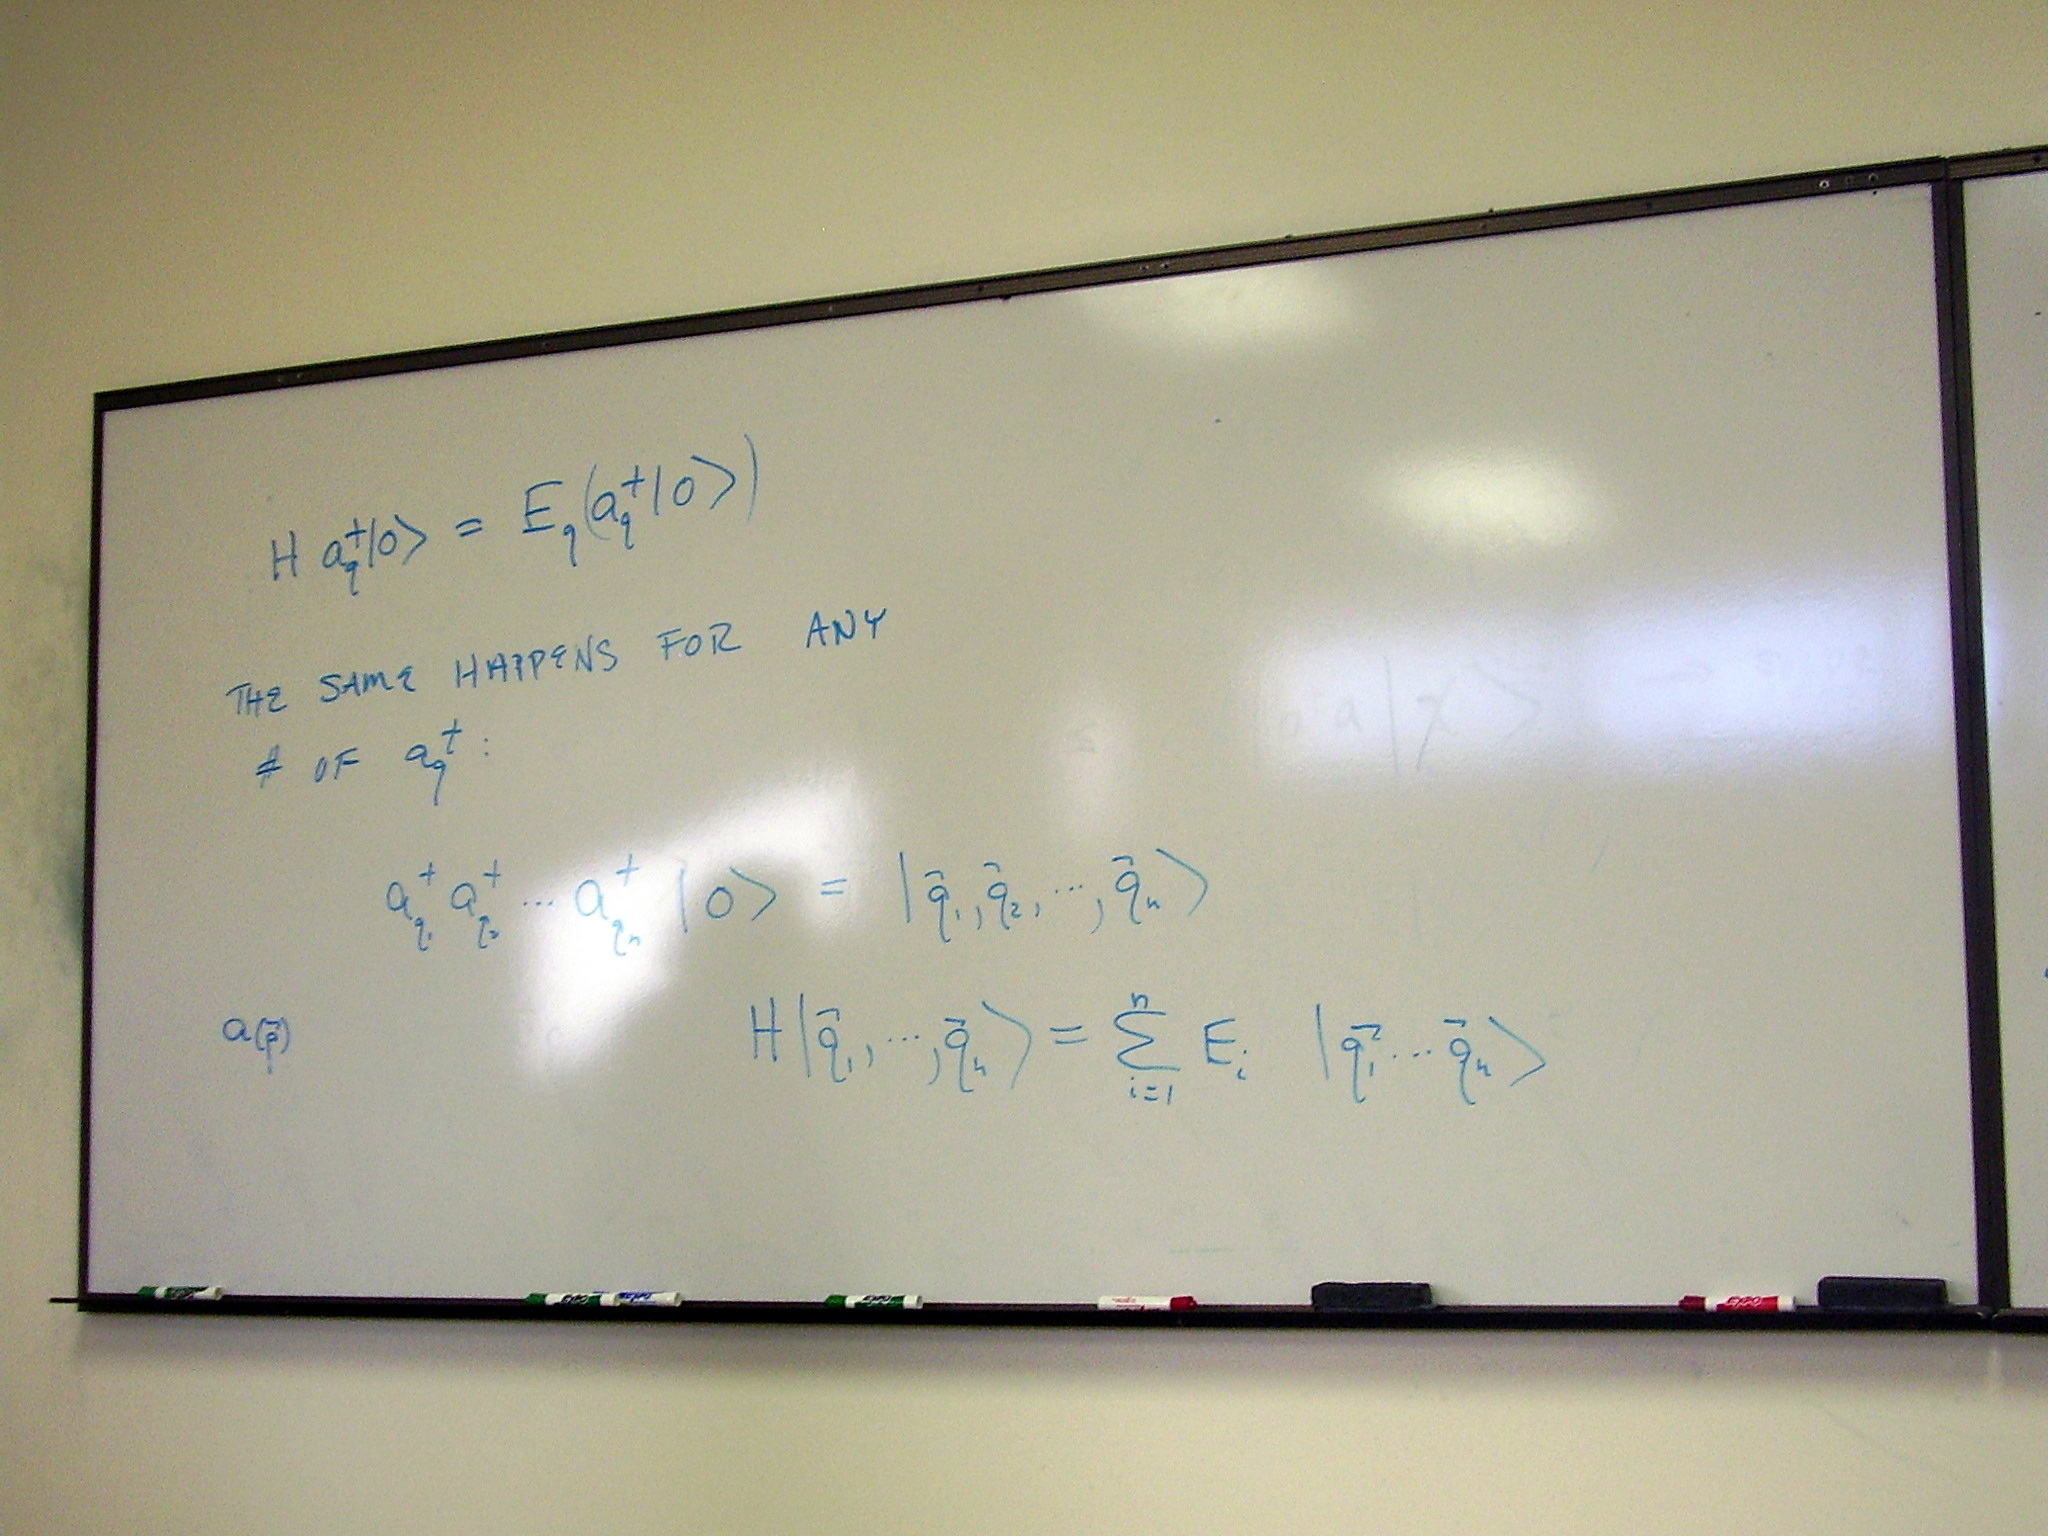 H a_q^†|0> = E_q(a_q^†|0>)
THE SAME HAPPENS FOR ANY
# OF a_q^†:
a_{q_1}^† a_{q_2}^† ... a_{q_n}^† |0> = |q⃗_1, q⃗_2, ..., q⃗_n>
a(p⃗)
H|q⃗_1, ..., q⃗_n> = ∑_{i=1}^{n} E_i |q⃗_1 ... q⃗_n>